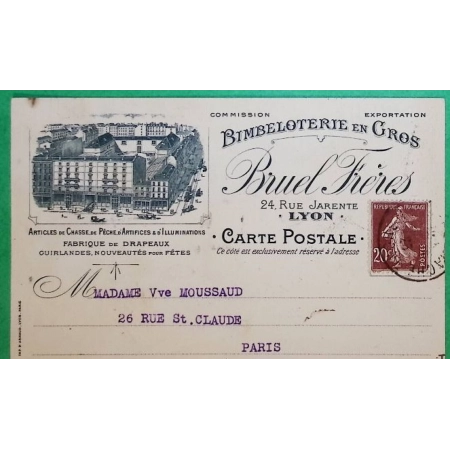 COMMISSION EXPORTATION
BIMBELOTERIE EN GROS
Bruel Frères
24, RUE JARENTE
· LYON ·
ARTICLES DE CHASSE, DE PÊCHE D'ARTIFICES & D'ILLUMINATIONS
FABRIQUE DE DRAPEAUX
GUIRLANDES, NOUVEAUTÉS POUR FÊTES
· CARTE POSTALE ·
Ce côté est exclusivement réservé à l'adresse
REPUBLIQUE FRANÇAISE
20c
POSTES
M MADAME Vve MOUSSAUD
26 RUE St.CLAUDE
PARIS